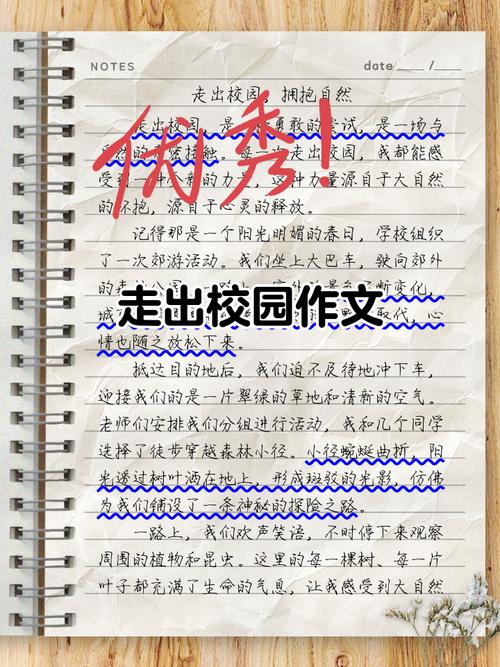 NOTES
date /
走出校园 拥抱自然
优秀!
走出校园,是 勇敢的尝试,是一场与
的 密接触。每一次走出校园,我都能感
受到一种 新的力量,这种力量源自于大自然
的怀抱,源自于心灵的释放。
记得那是一个阳光明媚的春日,学校组织
了一次郊游活动。我们坐上大巴车,驶向郊外
断变化,
走出校园作文
城 取代,心
情也随之放松下来。
抵达目的地后,我们迫不及待地冲下车,
迎接我们的是一片翠绿的草地和清新的空气。
老师们安排我们分组进行活动,我和几个同学
选择了徒步穿越森林小径。小径蜿蜒曲折,阳
光透过树叶洒在地上,形成斑驳的光影,仿佛
为我们铺设了一条神秘的探险之路。
一路上,我们欢声笑语,不时停下来观察
周围的植物和昆虫。这里的每一棵树、每一片
叶子都充满了生命的气息,让我感受到大自然